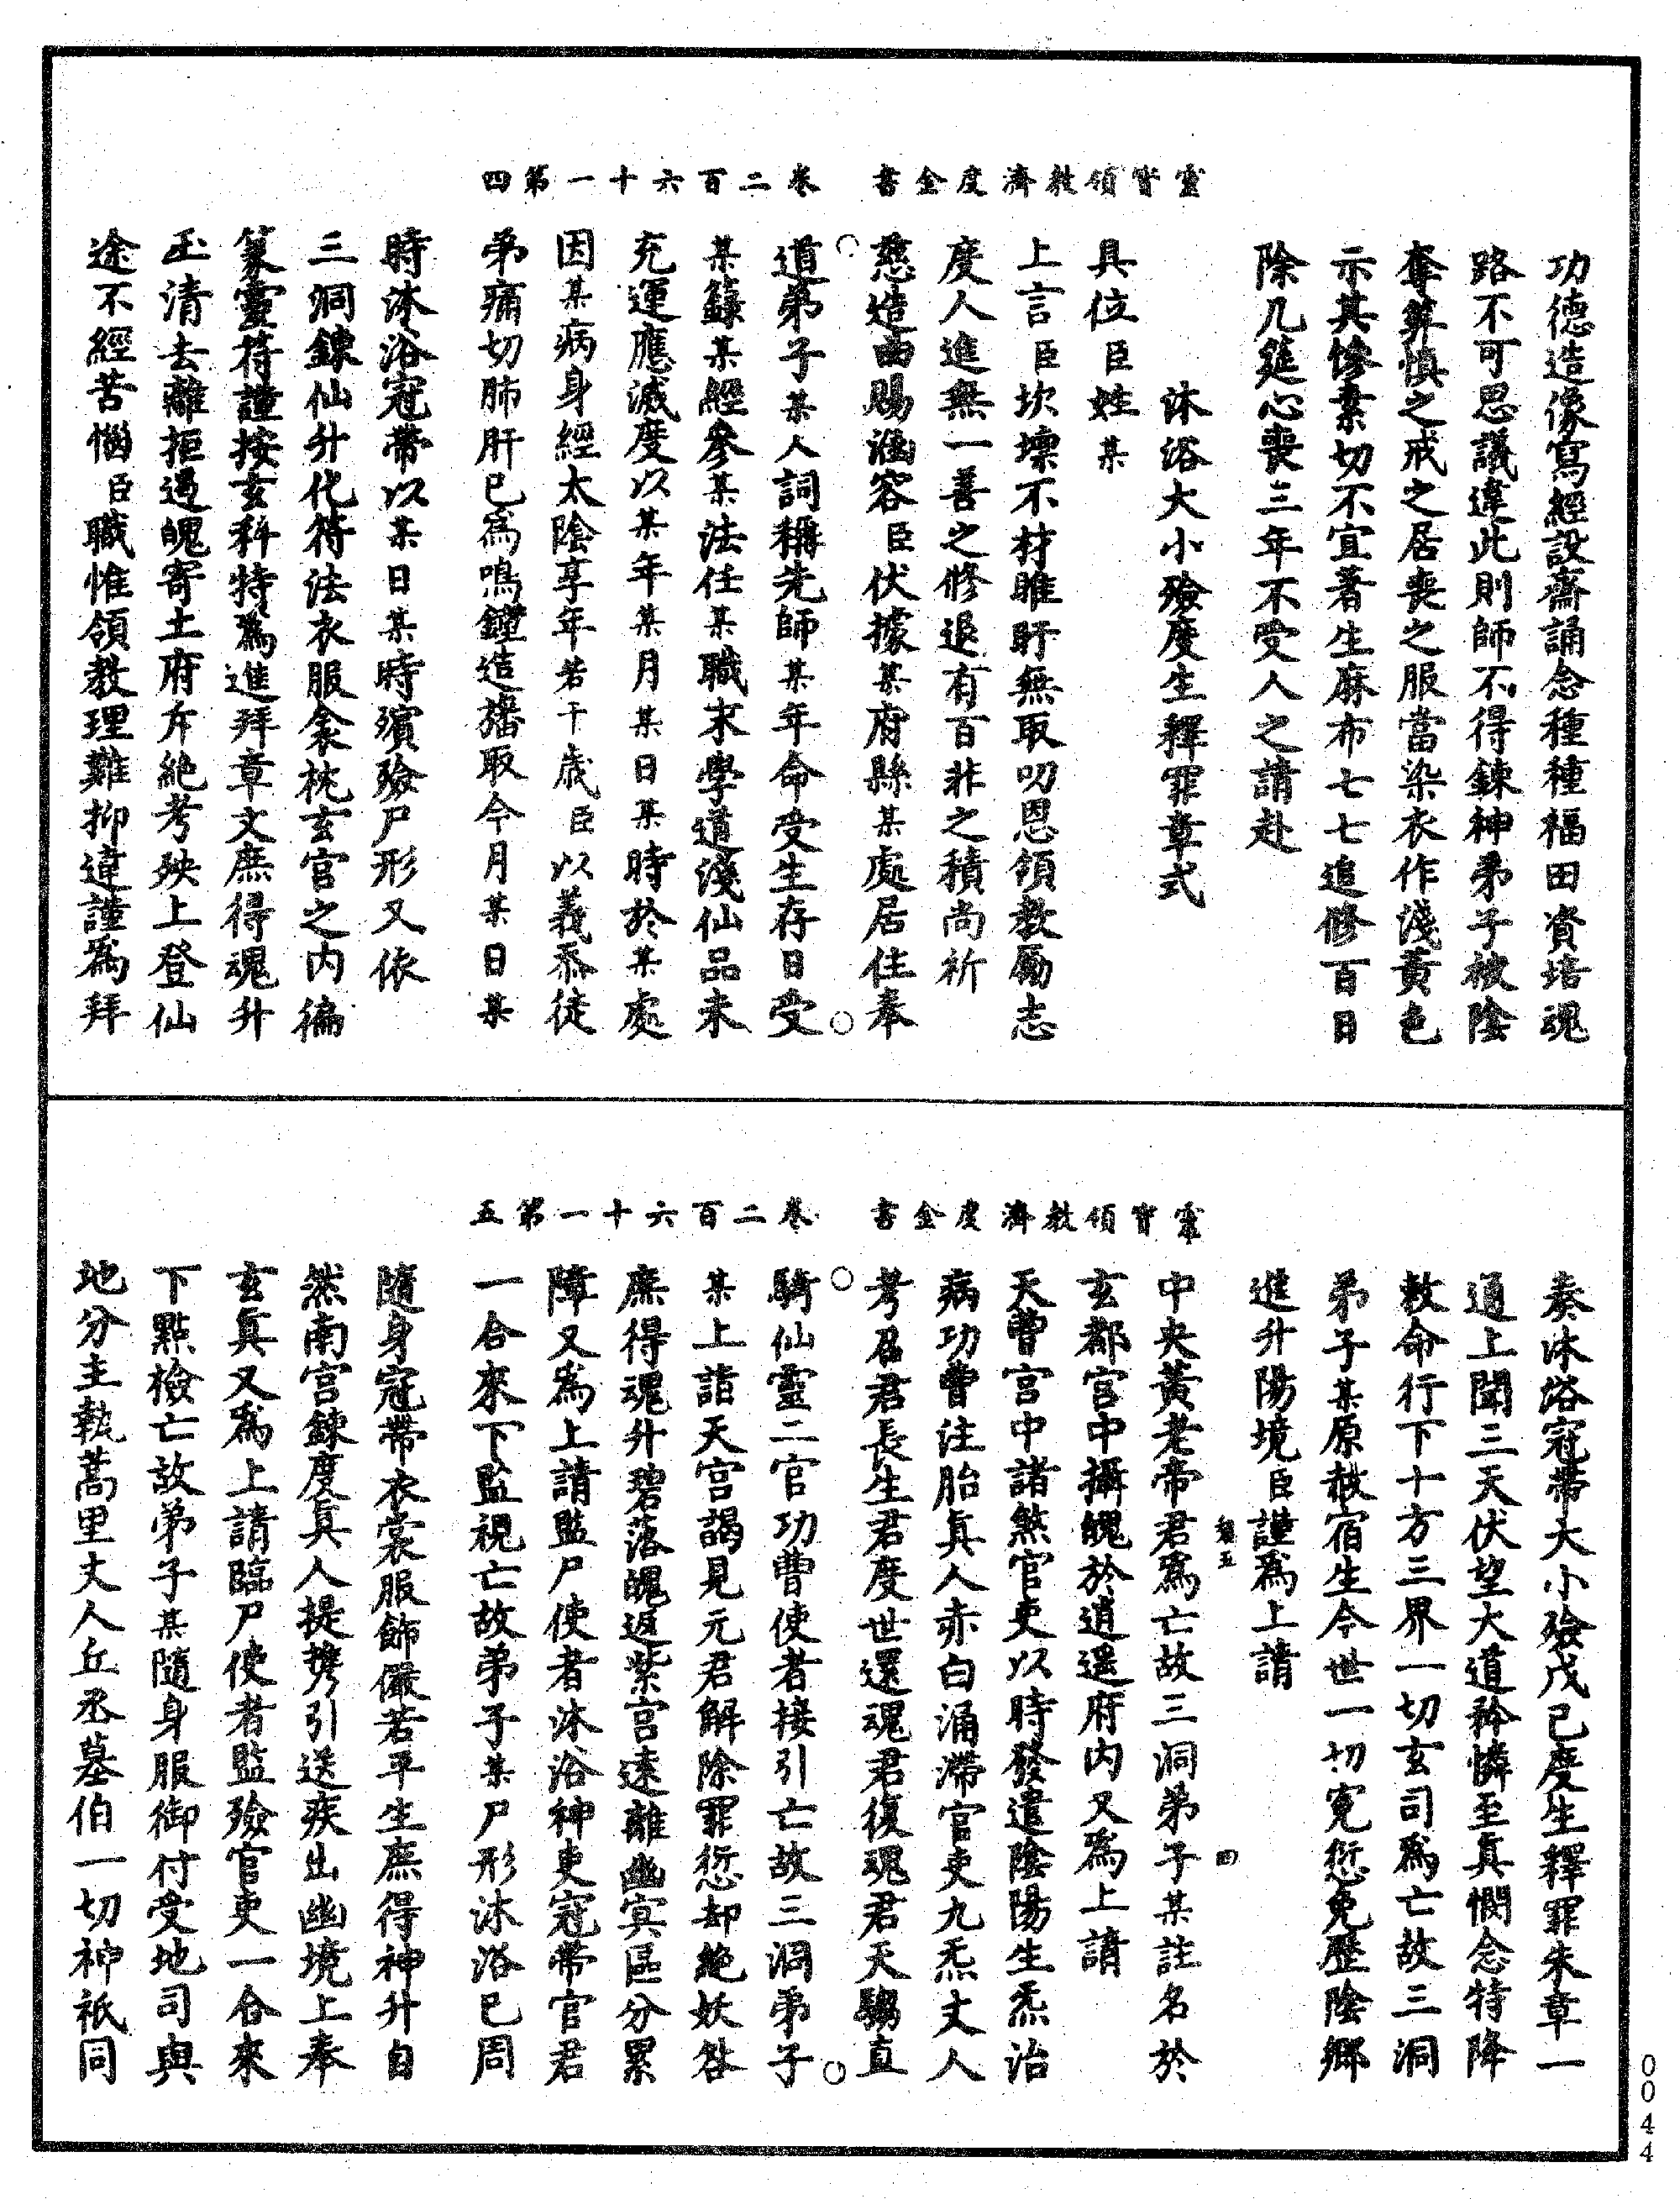 功德造像寫經設齋誦念種種福田資培魂
路不可思議違此則師不得鍊神弟子被陰
奪筭慎之戒之居喪之服當染衣作淺黃色
示其慘素切不宜著生麻布七七追修百日
除几筵心喪三年不受人之請赴
沐浴大小殮度生釋罪章式
具位臣姓某
上言臣坎壈不材睢盱無取叨恩領教勵志
度人進無一善之修退有百非之積尚祈
慈造曲賜涵容臣伏據某府縣某處居住奉
靈寶領教濟度金書 卷二百六十一第四
道弟子某人詞稱先師某年命受生存日受
某籙某經參某法任某職末學道淺仙品未
充運應滅度以某年某月某日某時於某處
因某病身經太陰享年若干歲臣以義忝徒
弟痛切肺肝已為鳴鐘造旛取今月某日某
時沐浴冠帶以某日某時殯殮尸形又依
三洞鍊仙升化符法衣服衾枕玄宮之內徧
篆靈符謹按玄科特為進拜章文庶得魂升
玉清去離拒逼魄寄土府斥絕考殃上登仙
途不經苦惱臣職惟領教理難抑違謹為拜
奏沐浴冠帶大小殮戊己度生釋罪朱章一
通上聞三天伏望大道矜憐至真憫念特降
敕命行下十方三界一切玄司為亡故三洞
弟子某原赦宿生今世一切寃愆免歷陰鄉
進升陽境臣謹為上請
中央黃老帝君為亡故三洞弟子某註名於
玄都宮中攝魄於逍遥府內又為上請
天曹宮中諸煞官吏以時發遣陰陽生炁治
病功曹注胎真人赤白涌滯官吏九炁丈人
考召君長生君度世還魂君復魂君天騶直
靈寶領教濟度金書 卷二百六十一第五
騎仙靈二官功曹使者接引亡故三洞弟子
某上詣天宮謁見元君解除罪愆却絕妖咎
庶得魂升碧落魄返紫宮遠離幽冥區分累
障又為上請監尸使者沐浴神吏冠帶官君
一合來下監視亡故弟子某尸形沐浴已周
隨身冠帶衣裳服飾儼若平生庶得神升自
然南宮鍊度真人提携引送疾出幽境上奉
玄真又為上請臨尸使者監殮官吏一合來
下點檢亡故弟子某隨身服御付受地司與
地分主執蒿里丈人丘丞墓伯一切神祇同
0044